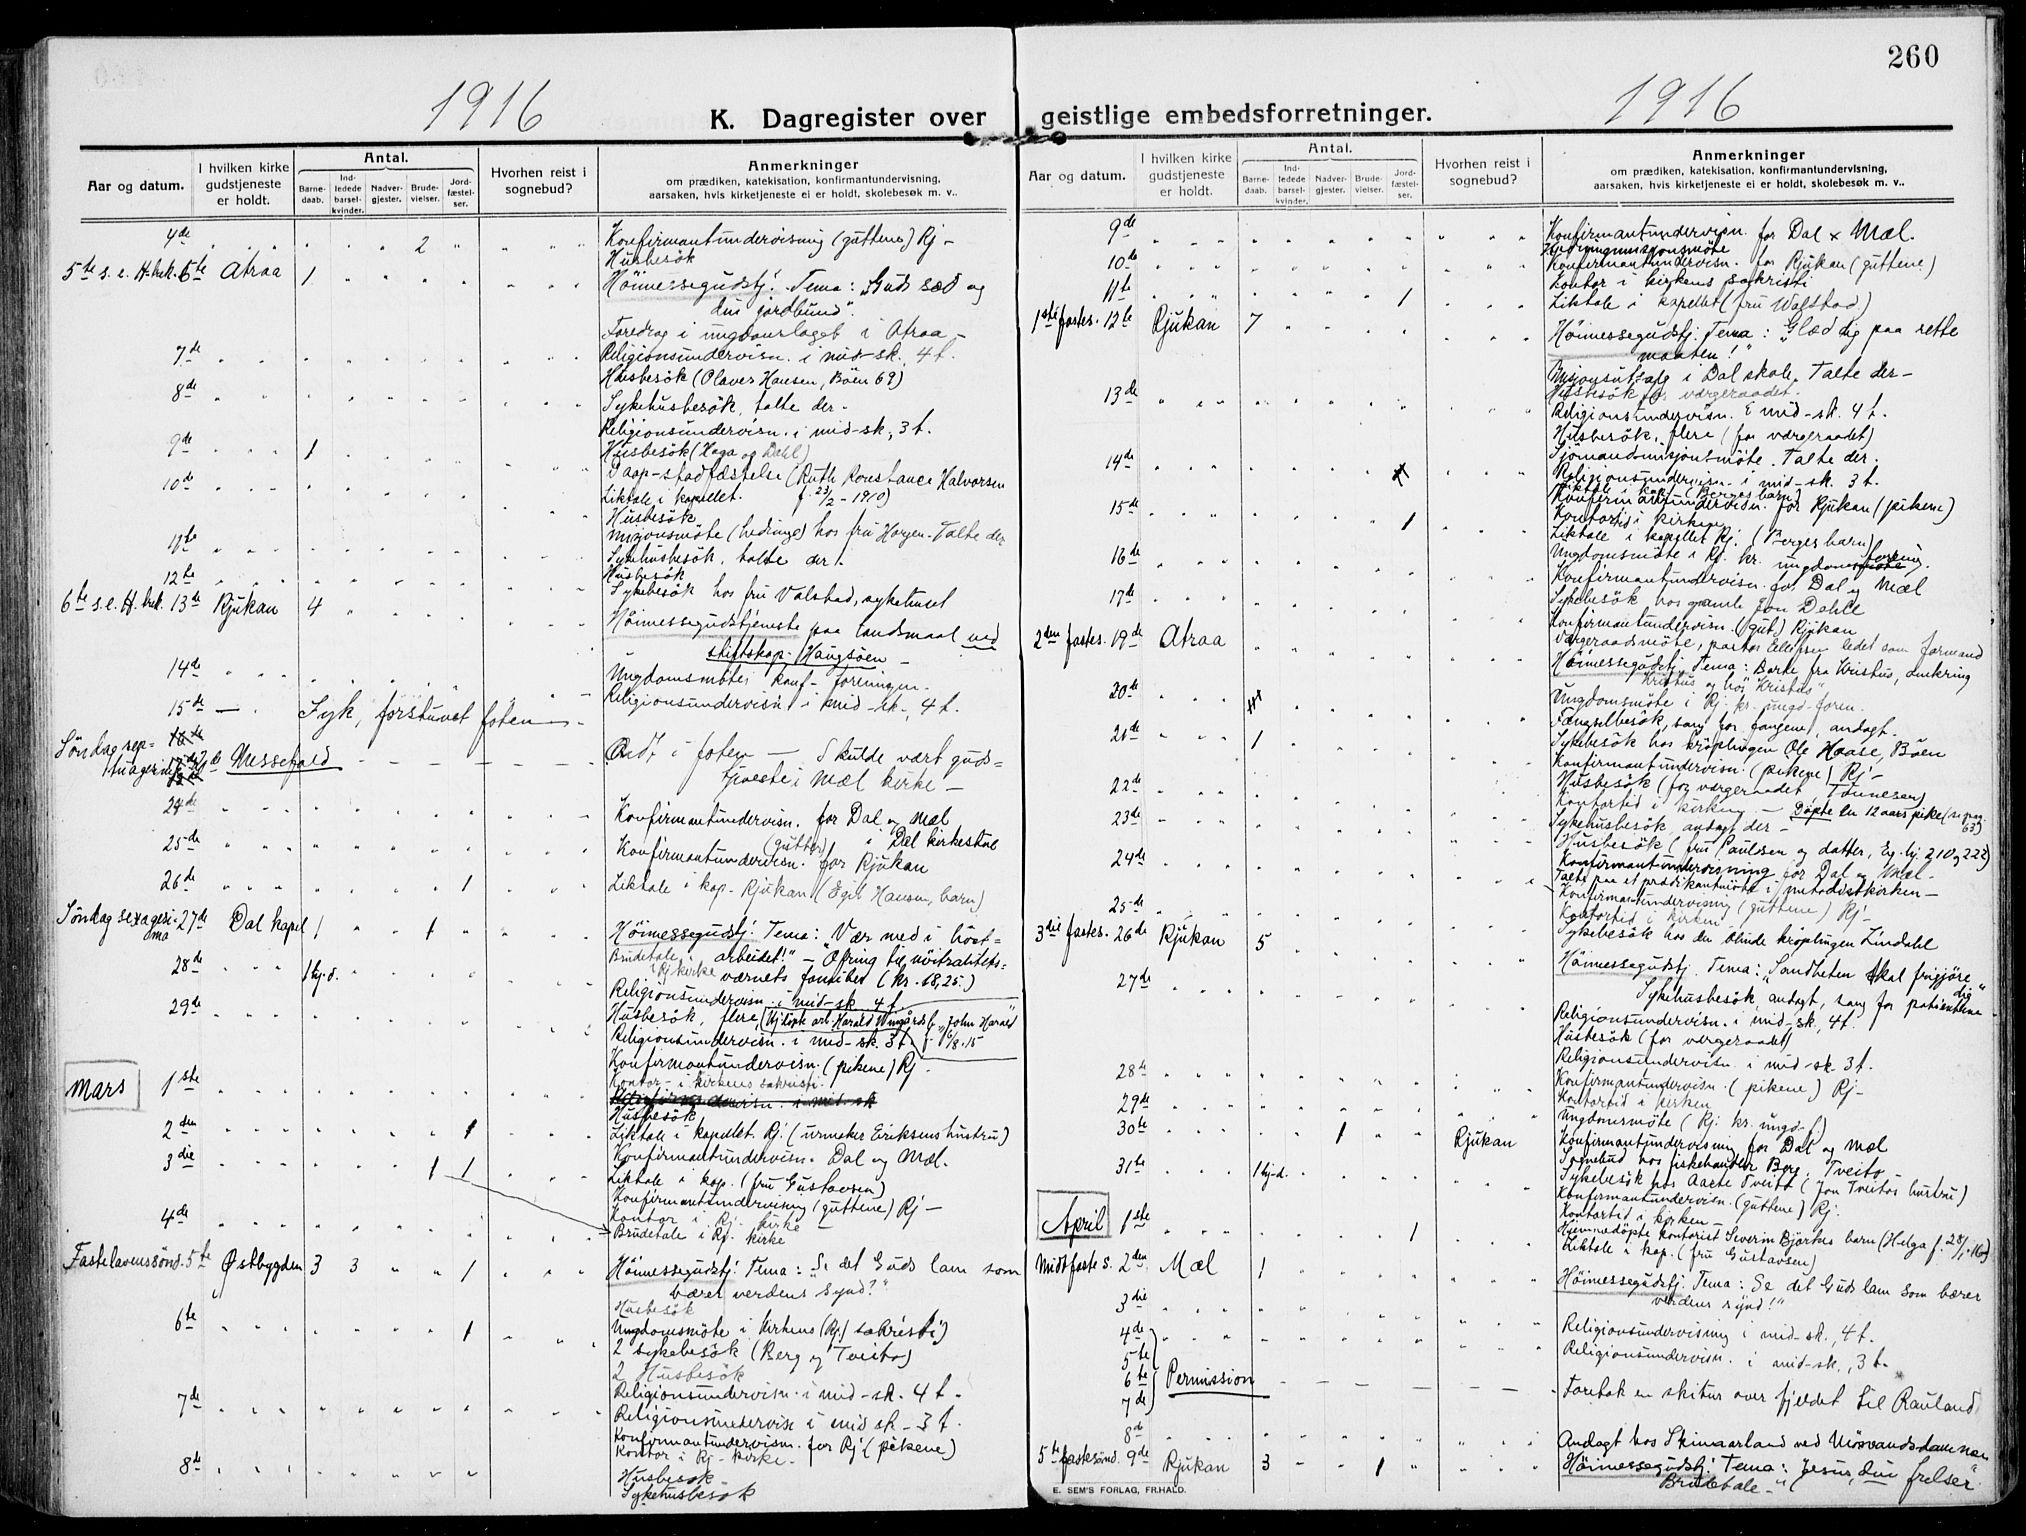 260
1916
1916
K. Dagregister over geistlige embedsforretninger.
Aar og datum.
I hvilken kirke gudstjeneste er holdt.
Antal.
Barnedaab.
Indledede barselkvinder.
Nadvergjester.
Brudevielser.
Jordfæstelser.
Hvorhen reist i sognebud?
Anmerkninger
om prædiken, katekisation, konfirmantundervisning,
aarsaken, hvis kirketjeneste ei er holdt, skolebesøk m. v..
4de 2 Konfirmantundervisning (guttene) Rj -
Husbesök
5te s. e. H. trek. 6te Atraa 1 Höimessegudstj. Tema: "Guds sæd og
din jordbund".
Foredrag i ungdomslaget i Atraa -
7de Religionsundervisn. i mid-sk. 4 t.
Husbesök (Olaves Hansen, Böen 69)
8de Sykehusbesök, talte der.
Religionsundervisn. i mid-sk, 3 t.
9de 1 Husbesök (Haga og Dahl)
Daap-stadfæstelse (Ruth Konstance Halvorsen
10de Liktale i kapellet. f. 23/2 - 1910)
Husbesök
Misjonsmöte (hedninge) hos fru Horgen. Talte der
11te Sykehusbesök, talte der.
Husbesök
12te Sykebesök hos fru Valstad, sykehuset
6te s. e. H. trek. 13de Rjukan 4 Höimessegudstjeneste paa landsmaal ved
stiftskap. Haugsöen -
14de Ungdomsmöte i konf- foreningen.
Religionsundervisn i mid-sk, 4 t.
15de Syk, forstuvet foten
Söndag sep=
tuagesima 20de Messefald Ond i foten - Skulde vært guds=
tjeneste i Mæl kirke -
24de Konfirmantundervisn. for Dal og Mæl
i Dal kirkestue
25de Konfirmantundervisn. (gutter) for Rjukan
26de 1 Liktale i kap. Rjukan (Egil Hansen, barn)
Söndag sexagesi=
ma 27de Dal kapel 1 1 Höimessegudstj. Tema: "Vær med i höst=
Brudetale i Rj kirke arbeidet!" - Ofring til nöitralitets=
værnets familier (kr. 68,25.)
28de 1 hj.d. Religionsundervisn. i mid-sk 4 t.
29de Husbesök, flere, Hj.döpt arb. Harald Wingårds b. "John Harald"
Religionsundervisn. i mid-sk. 3 t. f. 10/8.15
Konfirmantundervisn. (pikene) Rj.
Mars 1ste Kontor - i kirkens sakristi.
Husbesök
2den 1 Liktale i kapellet. Rj. (urmaker Eriksens hustru)
Konfirmantundervisn. Dal og Mæl.
3die 1 1 Liktale i kap. (fru Gustavsen)
Konfirmantundervisning (guttene) Rj -
Kontor i Rj. kirke -
4de Brudetale i Rj. kirke
Fastelavenssönd. 5te Østbygden 3 3 1 Höimessegudstj. Tema: "Se det Guds lam som
bærer verdens synd?"
Husbesök
6te 1 Ungdomsmöte i kirkens (Rj.) sakristi)
2 sykebesök (Berg og Tveito)
2 Husbesök
7de Religionsundervisn. i mid-sk. 4 t.
Religionsundervisn i mid sk - 3 t.
Konfirmantundervisn. for Rj (pikene)
8de Kontor i Rj - kirke.
Husbesök
Sykehusbesök
Aar og datum.
I hvilken kirke gudstjeneste er holdt.
Antal.
Barnedaab.
Indledede barselkvinder.
Nadvergjester.
Brudevielser.
Jordfæstelser.
Hvorhen reist i sognebud?
Anmerkninger
om prædiken, katekisation, konfirmantundervisning,
aarsaken, hvis kirketjeneste ei er holdt, skolebesøk m. v..
9de Konfirmantundervisn. for Dal x Mæl.
10de Konfirmantundervisn. for Rjukan (guttene)
Kontor i kirkens sakristi
11te 1 Liktale i kapellet (fru Walstad)
1ste fastes. 12te Rjukan 7 Höimessegudstj. Tema: "Glæd dig paa rette
maaten!"
Misjonsutsalg i Dal skole. Talte der -
13de Husbesök for værgeraadet.
Religionsundervisn. i mid-sk. 4 t.
Husbesök, flere (for værgeraadet)
Sjömandsmisjonsmöte. Talte der.
14de Religionsundervisn. i mid-sk. 3 t.
Konfirmantundervisn. for Rjukan (pikene)
15de 1 Kontortid i kirken
Liktale i kapellet Rj. (Berges barn)
Ungdomsmöte i Rj. kr. ungdomsforening.
16de Konfirmantundervisn. for Dal og Mæl
Sykebesök hos gamle Jon Dahle
17de Konfirmantundervisn. (gut) Rjukan
Værgeraadsmöte, pastor Ellefsen ledet som formand
2den fastes. 19de Atraa Höimessegudstj. Tema: Borte fra Kristus, omkring
Kristus og hos Kristus".
20de Ungdomsmöte i Rj. kr. ungd-foren.
Fængselbesök, sang for fangene, andagt.
21de 1 Sykebesök hos kröplingen Ole Haase, Böen
Konfirmantundervisn. (pikene) Rj -
Husbesök (for værgeraadet, Tönnesen)
22de Kontortid i kirken - Döpte en 12 aars pike (se pag. 63)
23de Sykehusbesök, andagt der -
Husbesök (fru Paulsen og datter, Eg. bj. 210 og 222)
24de Konfirmantundervisning for Dal og Mæl.
Talte paa et prædikantmöte i metodistkirken -
25de Konfirmantundervisning (guttene) Rj -
Kontortid i kirken
Sykebesök hos den blinde kröplingen Lindahl
3die fastes. 26de Rjukan 5 Höimessegudstj. Tema: "Sandheten skal frigjöre dig"
27de Sykehusbesök, andagt, sang for patienterne
Religionsundervisn. i mid-sk, 4 t.
Husbesök (for værgeraadet)
Religionsundervisn. i mid-sk. 3 t.
28de Konfirmantundervisn. (pikene) Rj -
Kontortid i kirken
29de Ungdomsmöte (Rj. kr. ungd-f)
30te 1 Rjukan Konfirmantundervisning for Dal og Mæl
Sognebud hos fiskehandler Berg, Tveito -
31te 1 hj-d. Sykebesök hos Aaste Tveito (Jon Tveitos hustru)
Konfirmantundervisn. (guttene) Rj.
April 1ste 1 Kontortid i kirken -
Hjemmedöpte kontorist Severin Björkes barn (Helga f. 28/1-16)
Liktale i kap. (fru Gustavsen)
Midtfaste s. 2den Mæl 1 Höimessegudstj. Tema: Se det Guds lam som bærer
verdens synd!"
3die Religionsundervisning i mid-sk., 4 t.
4de Religionsundervisn. i mid-sk., 3 t.
5te
6te Permission Foretok en skitur over fjeldet til Rauland
7de
8de Andagt hos Skinaarland ved Mösvandsdammen
5te fastesönd. 9de Rjukan 3 1 Höimessegudstj. Tema: Jesus, din frelser"
Brudetale -
E. SEM'S FORLAG, FR.HALD.